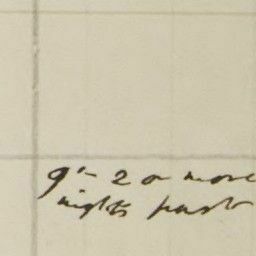 9"- 2 or more
nights past